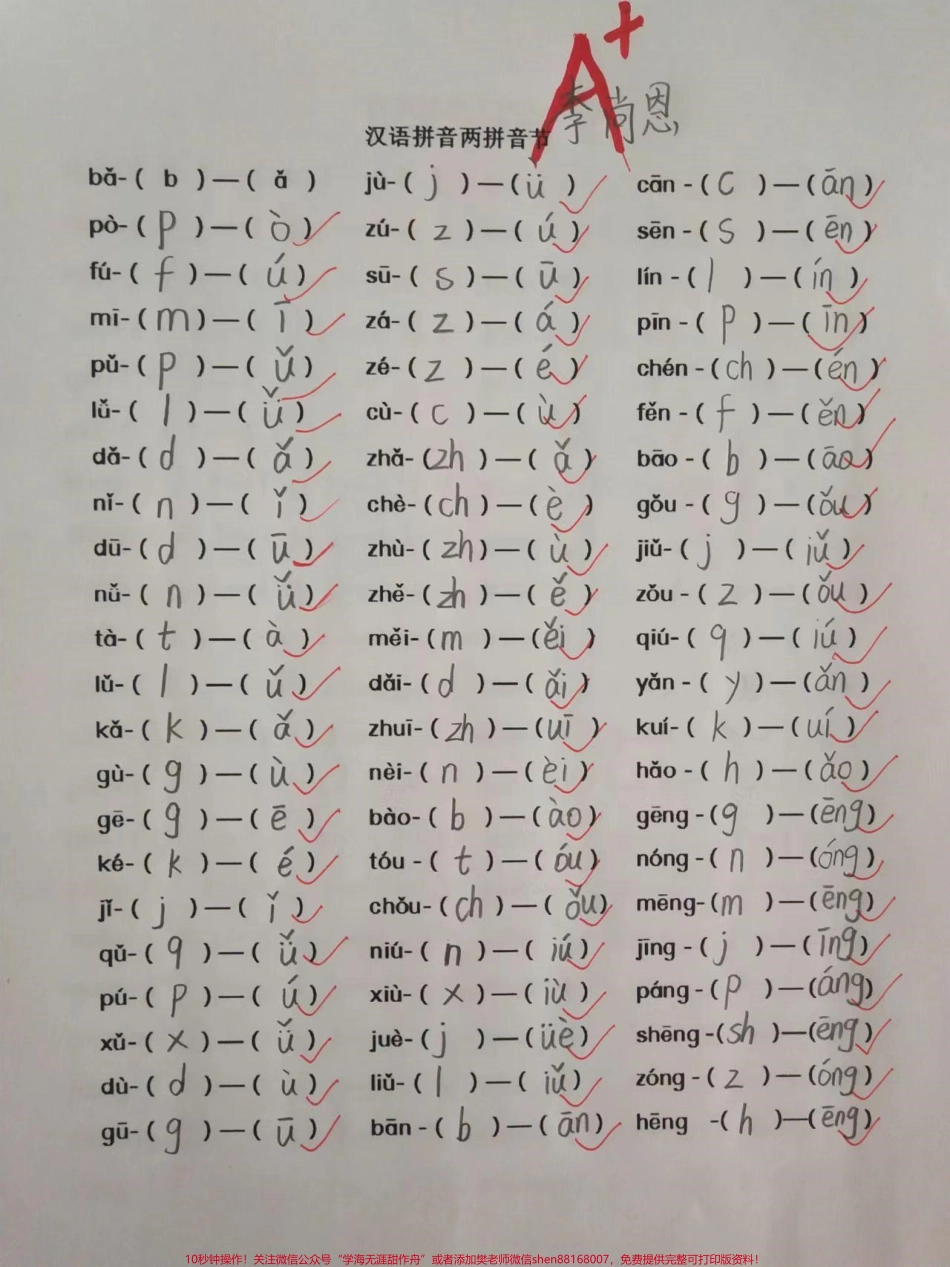 A+
李尚恩
汉语拼音两拼音节
bǎ-( b )—( ǎ ) jù-( j )—( ü ) cān -( c )—( ān )
pò-( p )—( ò ) zú-( z )—( ú ) sēn -( s )—( ēn )
fú-( f )—( ú ) sū-( s )—( ū ) lín -( l )—( ín )
mī-( m )—( ī ) zá-( z )—( á ) pīn -( p )—( īn )
pǔ-( p )—( ǔ ) zé-( z )—( é ) chén -( ch )—( én )
lǚ-( l )—( ǚ ) cù-( c )—( ù ) fěn -( f )—( ěn )
dǎ-( d )—( ǎ ) zhǎ-( zh )—( ǎ ) bāo -( b )—( āo )
nǐ-( n )—( ǐ ) chè-( ch )—( è ) gǒu -( g )—( ǒu )
dū-( d )—( ū ) zhù-( zh )—( ù ) jiǔ-( j )—( iǔ )
nǚ-( n )—( ǚ ) zhě-( zh )—( ě ) zǒu -( z )—( ǒu )
tà-( t )—( à ) měi-( m )—( ěi ) qiú-( q )—( iú )
lǔ-( l )—( ǔ ) dǎi-( d )—( ǎi ) yǎn -( y )—( ǎn )
kǎ-( k )—( ǎ ) zhuī-( zh )—( uī ) kuí-( k )—( uí )
gù-( g )—( ù ) nèi-( n )—( èi ) hǎo -( h )—( ǎo )
gē-( g )—( ē ) bào-( b )—( ào ) gēng -( g )—( ēng )
ké-( k )—( é ) tóu -( t )—( óu ) nóng -( n )—( óng )
jǐ-( j )—( ǐ ) chǒu-( ch )—( ǒu ) mēng-( m )—( ēng )
qǔ-( q )—( ǚ ) niú-( n )—( iú ) jīng -( j )—( īng )
pú-( p )—( ú ) xiù-( x )—( iù ) páng -( p )—( áng )
xǔ-( x )—( ǚ ) juè-( j )—( üè ) shēng -( sh )—( ēng )
dù-( d )—( ù ) liǔ-( l )—( iǔ ) zóng -( z )—( óng )
gū-( g )—( ū ) bān -( b )—( ān ) hēng -( h )—( ēng )
10秒钟操作！关注微信公众号“学海无涯甜作舟”或者添加樊老师微信shen88168007，免费提供完整可打印版资料！